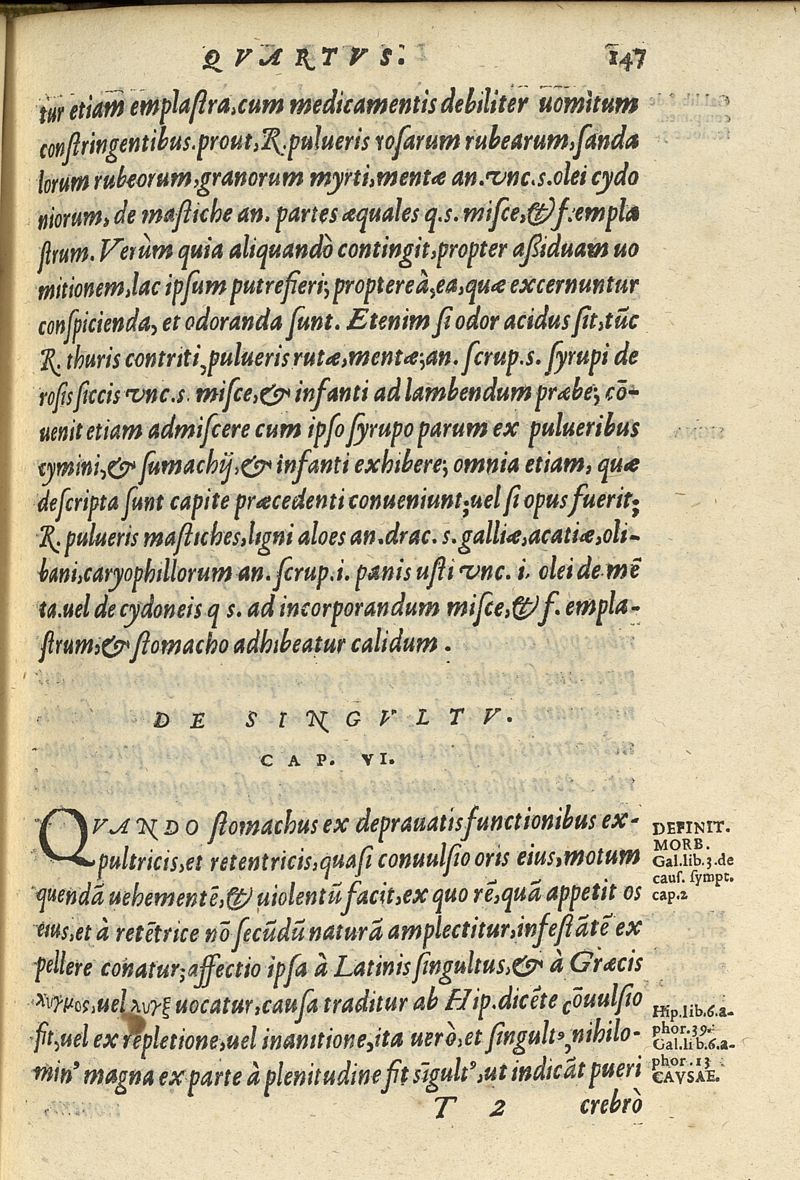 QVARTVS. 147
tur etiam emplastra, cum medicamentis debiliter uomitum
constringentibus. prout, ℞. pulueris rosarum rubearum, sanda
lorum rubeorum, granorum myrti, mentæ an. vnc. s. olei cydo
niorum, de mastiche an. partes æquales q. s. misce, & f. empla
strum. Verùm quia aliquandò contingit, propter aßiduam uo
mitionem, lac ipsum putrefieri; proptereà, ea, quæ excernuntur
conspicienda, et odoranda sunt. Etenim si odor acidus sit, tũc
℞. thuris contriti, pulueris rutæ, mentæ; an. scrup. s. syrupi de
rosis siccis vnc. s. misce, & infanti ad lambendum præbe; cõ-
uenit etiam admiscere cum ipso syrupo parum ex pulueribus
cymini, & sumachij, & infanti exhibere; omnia etiam, quæ
descripta sunt capite præcedenti conueniunt; uel si opus fuerit;
℞. pulueris mastiches, ligni aloes an. drac. s. galliæ, acatiæ, oli-
bani, caryophillorum an. scrup. i. panis usti vnc. i. olei de mẽ
ta. uel de cydoneis q s. ad incorporandum misce, & f. empla-
strum, & stomacho adhibeatur calidum.
DE SINGVLTV.
CAP. VI.
QVANDO stomachus ex deprauatis functionibus ex-
pultricis, et retentricis, quasi conuulsio oris eius, motum
quendã uehementẽ, & uiolentũ facit, ex quo rẽ, quã appetit os
eius, et à retẽtrice nõ secũdũ naturã amplectitur, infestãtẽ ex
pellere conatur; affectio ipsa à Latinis singultus, & à Græcis
λυγμος, uel λυγξ uocatur, causa traditur ab Hip. dicẽte cõuulsio
fit, uel ex repletione, uel inanitione, ita uerò, et singultꝰ, nihilo-
minꝰ magna ex parte à plenitudine fit sĩgultꝰ, ut indicãt pueri
T 2 crebrò
DEFINIT.
MORB.
Gal. lib. 3. de
caus. sympt.
cap. 2
Hip. lib. 6. a-
phor. 39.
Gal. lib. 6. a-
phor. 13
CAVSAE.